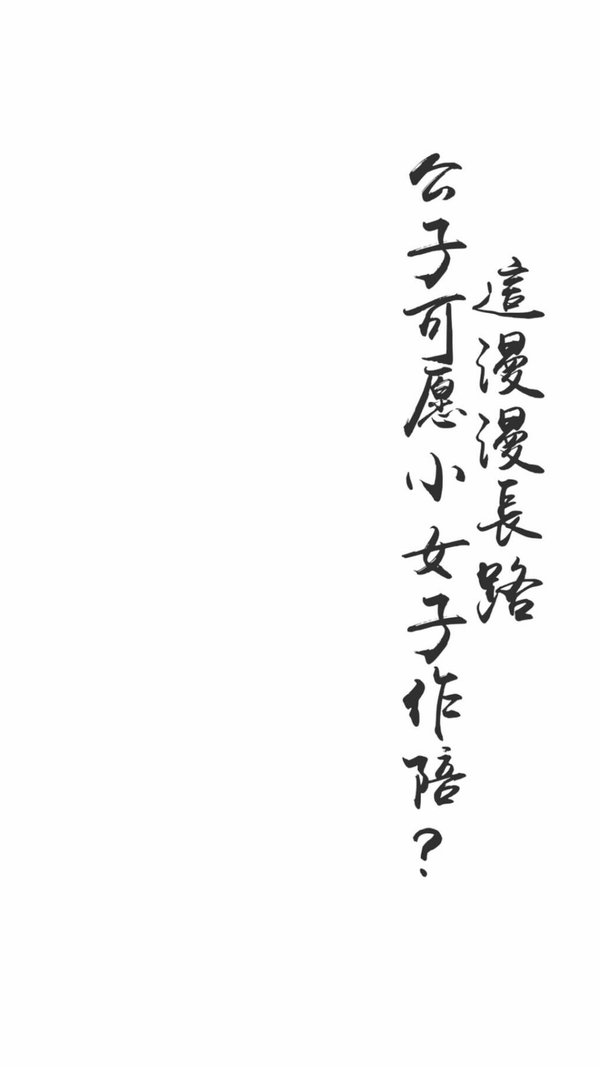 這漫漫長路
公子可愿小女子作陪？